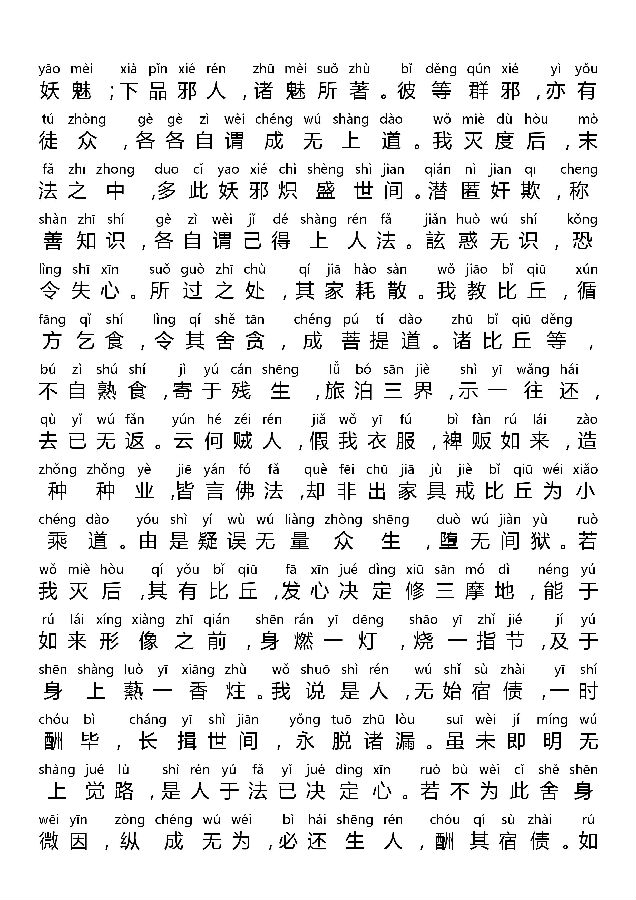 yāo mèi xià pǐn xié rén zhū mèi suǒ zhù bǐ děng qún xié yì yǒu
妖魅;下品邪人,诸魅所著。彼等群邪,亦有
tú zhòng gè gè zì wèi chéng wú shàng dào wǒ miè dù hòu mò
徒众,各各自谓成无上道。我灭度后,末
fǎ zhī zhōng duō cǐ yāo xié chì shèng shì jiān qián nì jiān qī chēng
法之中,多此妖邪炽盛世间。潜匿奸欺,称
shàn zhī shí gè zì wèi jǐ dé shàng rén fǎ jiǎn huò wú shí kǒng
善知识,各自谓己得上人法。詃惑无识,恐
lìng shī xīn suǒ guò zhī chù qí jiā hào sàn wǒ jiāo bǐ qiū xún
令失心。所过之处,其家耗散。我教比丘,循
fāng qǐ shí lìng qí shě tān chéng pú tí dào zhū bǐ qiū děng
方乞食,令其舍贪,成菩提道。诸比丘等,
bú zì shú shí jì yú cán shēng lǚ bó sān jiè shì yī wǎng hái
不自熟食,寄于残生,旅泊三界,示一往还,
qù yǐ wú fǎn yún hé zéi rén jiǎ wǒ yī fú bì fàn rú lái zào
去已无返。云何贼人,假我衣服,裨贩如来,造
zhǒng zhǒng yè jiē yán fó fǎ què fēi chū jiā jù jiè bǐ qiū wéi xiǎo
种种业,皆言佛法,却非出家具戒比丘为小
chéng dào yóu shì yí wù wú liàng zhòng shēng duò wú jiàn yù ruò
乘道。由是疑误无量众生,堕无间狱。若
wǒ miè hòu qí yǒu bǐ qiū fā xīn jué dìng xiū sān mó dì néng yú
我灭后,其有比丘,发心决定修三摩地,能于
rú lái xíng xiàng zhī qián shēn rán yī dēng shāo yī zhǐ jié jí yú
如来形像之前,身燃一灯,烧一指节,及于
shēn shàng luò yī xiāng zhù wǒ shuō shì rén wú shǐ sù zhài yī shí
身上爇一香炷。我说是人,无始宿债,一时
chóu bì cháng yī shì jiān yǒng tuō zhū lòu suī wèi jí míng wú
酬毕,长揖世间,永脱诸漏。虽未即明无
shàng jué lù shì rén yú fǎ yǐ jué dìng xīn ruò bù wèi cǐ shě shēn
上觉路,是人于法已决定心。若不为此舍身
wēi yīn zòng chéng wú wéi bì hái shēng rén chóu qí sù zhài rú
微因,纵成无为,必还生人,酬其宿债。如